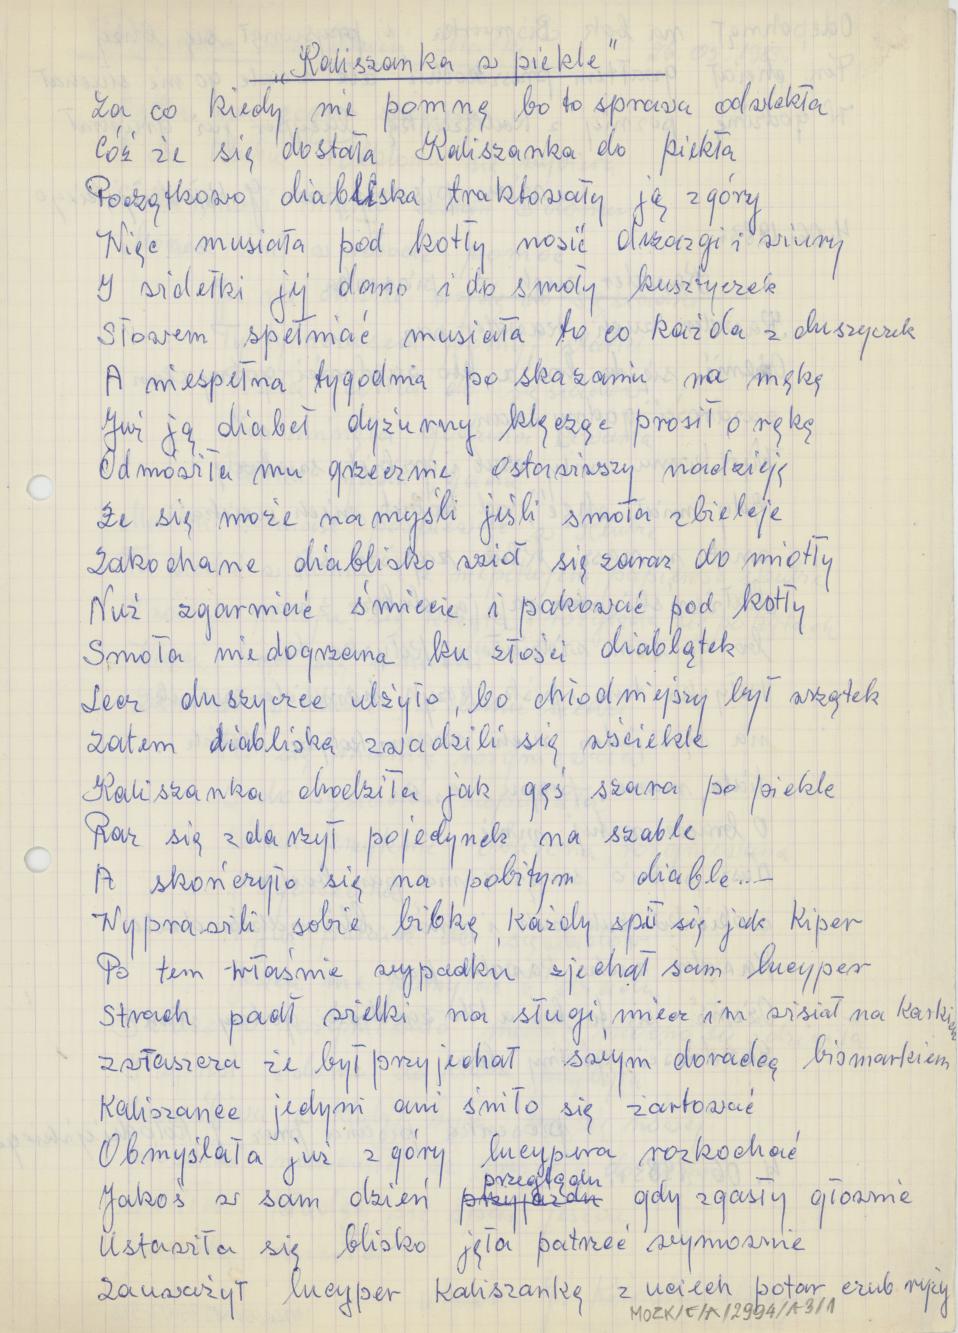 „Kaliszanka w piekle"
Za co kiedy nie pomnę bo to sprawa odwlekła
Cóż że się dostała Kaliszanka do piekła
Początkowo diabliska traktowały ją z góry
Więc musiała pod kotły nosić drzazgi i wiury
I widełki jej dano i do smoły kusztyczek
Słowem spełniać musiała to co każda z duszyczek
A niespełna tygodnia po skazaniu na mękę
Już ją diabeł dyżurny klęcząc prosił o rękę
Odmówiła mu grzecznie ostawiwszy nadzieję
Że się może namyśli jeśli smoła zbieleje
Zakochane diablisko wziął się zaraz do miotły
Nuż zgarniać śmiecie i pakować pod kotły
Smoła niedogrzana ku złości diablątek
Lecz duszyczce ulżyło, bo chłodniejszy był wrzątek
Zatem diabliską zwadzili się wściekle
Kaliszanka chodziła jak gęś szara po piekle
Raz się zdarzył pojedynek na szable
A skończyło się na pobitym diable...—
Wyprawili sobie bibkę, każdy spił się jak Kiper
Po tem właśnie wypadku zjechał sam lucyper
Strach padł wielki na sługi, miecz im wisiał na karkiem
zwłaszcza że był przyjechał swym doradcą bismarkiem
Kaliszance jedyni ani śniło się żartować
Obmyślała już z góry lucypera rozkochać
Jakoś w sam dzień przyjazdu przeglądu gdy zgasły głownie
Ustawiła się blisko jęła patrzeć wymownie
Zauważył lucyper Kaliszankę z uciech potar czub ryży
MOZK/E/A/2994/A3/1